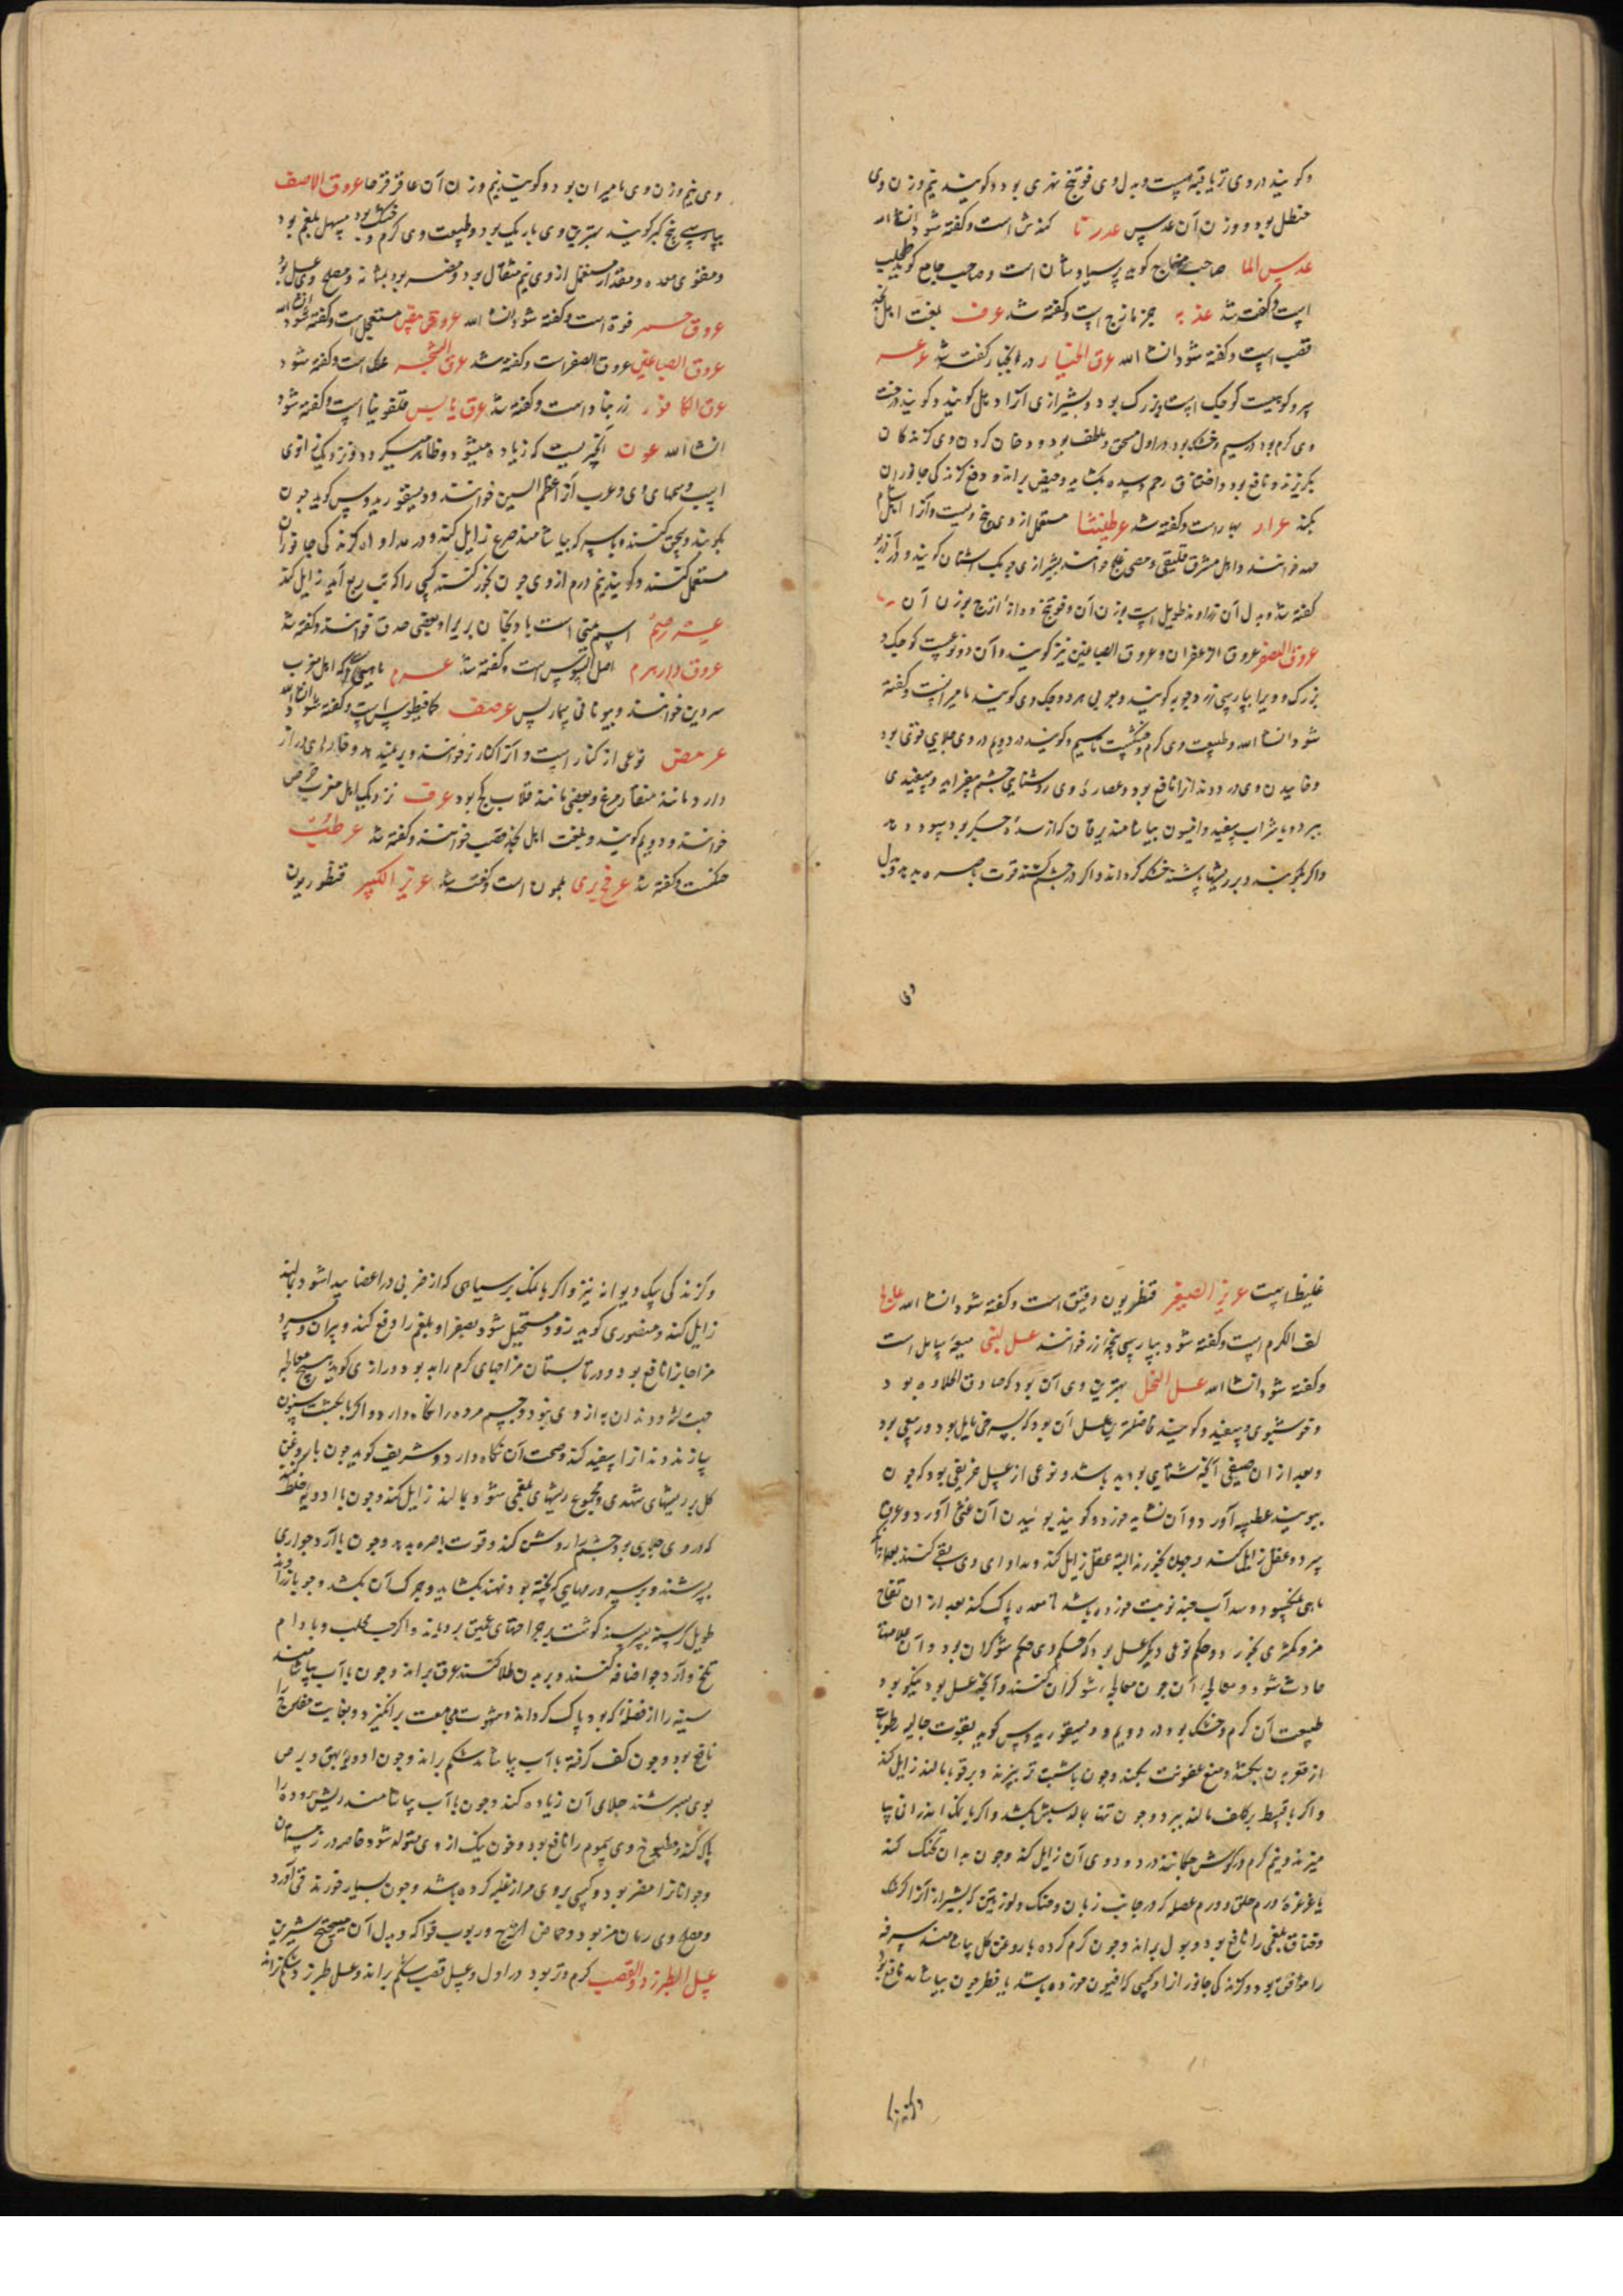 وکویند در وی تریاقیة هست وبدل وی فوتنج نهری بود وکویند نیم وزن وی
حنظل بود و وزن آن عدس عدرتا کندش است وکفته شود انشا الله
عدس الما صاحب منهاج کوید پرسیاوشان است وصاحب جامع کوید طحلب
است وکفته شد عذبه جزمازج است وکفته شد عرف بلغت اهل نجد
قصب است وکفته شود انشا الله عرق الخیار در کفته شد عرعر
سرو کوهیست کوچک است وبزرک بود وبشیرازی آنرا وهل کویند وکویند درخت
وی کرم بود در سیم وخشک بود در اول مسخن وملطف بود ودخان کردن وی کزندکان
بکریزند ونافع بود واختناق رحم وسده بکشاید وحیض براند ودفع کزندکی جانوران
بکند عرار بهار است وکفته شد عرطنیثا مستعمل از وی بیخ ویست وآنرا اهل شام
خوانند واهل مشرق خوانند بشیرازی چوبک اشنان کویند ودر آذربو
کفته شد وبدل آن زراوند طویل است بوزن آن وفوتنج ودانه اترج بوزن آن
عروق الصفر عروق الزعفران وعروق الصباغین نیز کویند وآن دو نوعست کوچک و
بزرک و ویرا بپارسی زردچوبه کویند وبعربی هرد وکوچک وی کویند مامیرانست وکفته
شود انشا الله وطبیعت وی کرم وخشکست تا سیم وکویند در دویم در وی جلایی قوی بود
وخاییدن وی درد دندانرا نافع بود وعصاره وی روشنایی چشم بیفزاید وسفیدی
ببرد وبا شراب سفید وانیسون بیاشامند یرقان که از سده جکر بود سود دهد
واکر بکوبند وبر ریشها پاشند خشک کرداند واکر در چشم کشند قوت باصره بدهد وبدل
وی
وی نیم وزن وی مامیران بود وکویند نیم وزن آن عاقرقرحا عروق الاصف
بپارسی بیخ کبر کویند بهترین وی باریک بود وطبیعت وی کرم وخشک بود مسهل بلغم بود
ومقوی معده ومقدار مستعمل از وی نیم مثقال بود ومضر بود بمثانه ومصلح وی عسل بود
عروق حمر فوة است وکفته شود انشا الله عروق مستعجل است وکفته شود انشا الله
عروق الصباغین عروق الصفر است وکفته شد عرق الشجر علک است وکفته شود
عرق الکافور زرنباد است وکفته شد عرق یابس قلقونیا است وکفته شود
انشا الله عرن چیزیست که زیاده میشود وظاهر میکردد نزدیک زانوی
اسب وسمهای وی وعرب آنرا خوانند ودیسقوریدوس کوید چون
بکوبند وسحق کنند وبا سرکه بیاشامند صرع زایل کند ودر مداواه کزندکی جانوران
مستعمل کنند وکویند نیم درم از وی چون بخور کنند کسی را که تب ربع آید زایل کند
اسم عربی است بادنجان بری را وبعضی حدق خوانند وکفته شد
عروق دارهرم اصل السوس است وکفته شد عرم ماهی است که اهل مغرب
سردین خوانند وبیونانی سماریس عرصف کمافیطوس است وکفته شود انشا الله
عرمض نوعی از کنار است وآنرا کنار نر خوانند وبر بلند نشود وخارهای دراز
دارد مانند منقار مرغ وبعضی مانند قلاب کج بود عرف نزدیک اهل مغرب حرص
خوانند ودوم کویند وبلغت اهل نجد قصب خوانند وکفته شد عرطب
حکست وکفته شد عرفج بری بلبون است وکفته شد عزیز الکبیر قنطوریون
غلیظ است عزیز الصغیر قنطریون دقیق است وکفته شود انشا الله عسالج
لف الکرم است وکفته شود بپارسی پنجه رز خوانند عسل لبنی میعه سایل است
وکفته شود انشا الله عسل النحل بهترین وی آن بود که صادق الحلاوه بود
وخوشبوی وسفید وکویند فاضلترین عسل آن بود که بسرخی مایل بود وربیعی بود
وبعد از ان صیفی آنچه شتایی بود بد باشد ونوعی از عسل حریفی بود که چون
ببویند عطسه آورد وآن نشاید خورد وکویند بوییدن آن غشی آورد وعرق
سرد وعقل زایل کند وچون بخورند البته عقل زایل کند ومداوای وی بقی کنند بعد از انکه
ماهی وسداب چند نوبت خورده باشد تا معده پاک کند بعد از ان تفاح
مز وکمثری بخورد وحکم نوعی دیکر عسل بود که حکم وی حکم شوکران بود وآن علامتها
حادث شود ومعالجه آن چون معالجه شوکران کنند وآنچه عسل بود نیکو بود
طبیعت آن کرم وخشک بود در دویم ودیسقوریدوس کوید بقوت جالیه رطوبات
از قعر بدن بکشد ومنع عفونت بکند وچون با شبت تر بپزند وبر قوبا بمالند زایل کند
واکر با قسط بر کلف مالند ببرد وچون تنها بمالند سبش بکشد واکر با نمک اندرانی بیا
میزند ونیم کرم در کوش چکانند درد ودوی آن زایل کند وچون بدان تحنک کنند
یا غرغره ورم حلق وورم عضله که در جانب زبان وحنک ولوزتین که بشیرازی آنرا کرکک
وخناق بلغمی را نافع بود وبول براند وچون کرم کرده با روغن کل بیاشامند سرفه
را موافق بود وکزندکی جانورانرا وکسی که افیون خورده باشد یا فطر چون بیاشامد نافع بود
وکزندکی
وکزندکی سک دیوانه نیز واکر با نمک بر سیاهی که از ضربی در اعضا پیدا شود بمالند
زایل کند ومنصوری کوید زود مستحیل شود بصفرا وبلغم را دفع کند وپیران وسرد
مزاجانرا نافع بود ودر تابستان مزاجهای کرم را بد بود ورازی کوید هیچ معالجه
جهت لثه ودندان به از وی نبود وجسم مرده را نکاه دارد واکر با انکشت سنون
سازند دندانرا سفید کند وصحت آن نکاه دارد وشریف کوید چون با روغن
کل بر ریشهای شهدی ومجموع ریشهای بلغمی شور بمالند زایل کند وچون با ادویه خلط کنند
که در وی جلایی بود چشم را روشن کند وقوت باصره بدهد وچون با آرد حواری
بسرشند وبر سر ورمهایی که پخته بود نهند بکشاید وچرک آن بکشد وچون با زراوند
طویل کرسنه بسرشند کوشت بر جراحتهای عمیق برویاند واکر حب محلب وبادام
تلخ وآرد جو اضافه کنند وبر بدن طلا کنند عرق براند وچون با آب بیاشامند
سینه را از فضله که بود پاک کرداند وشهوت مجامعت برانکیزد وبغایت مفلوج را
نافع بود وچون کف کرفته با آب بیاشامند شکم براند وچون ادویه بهق وبرص
بوی بسرشند جلای آن زیاده کند وچون با آب بیاشامند ریش روده را
پاک کند ومطبوخ وی سموم را نافع بود وخون نیک از وی متولد شود خاصه در زمستان
وجوانانرا مضر بود وکسی که بر وی مرار غلبه کرده باشد وچون بسیار خورند قی آورد
ومصلح وی رمان مز بود وحماض اترج وربوب فواکه وبدل آن میبختج شیرین
عسل الطبرزد والقصب کرم وتر بود در اول وعسل قصب شکم براند وعسل طبرزد شکم نراند